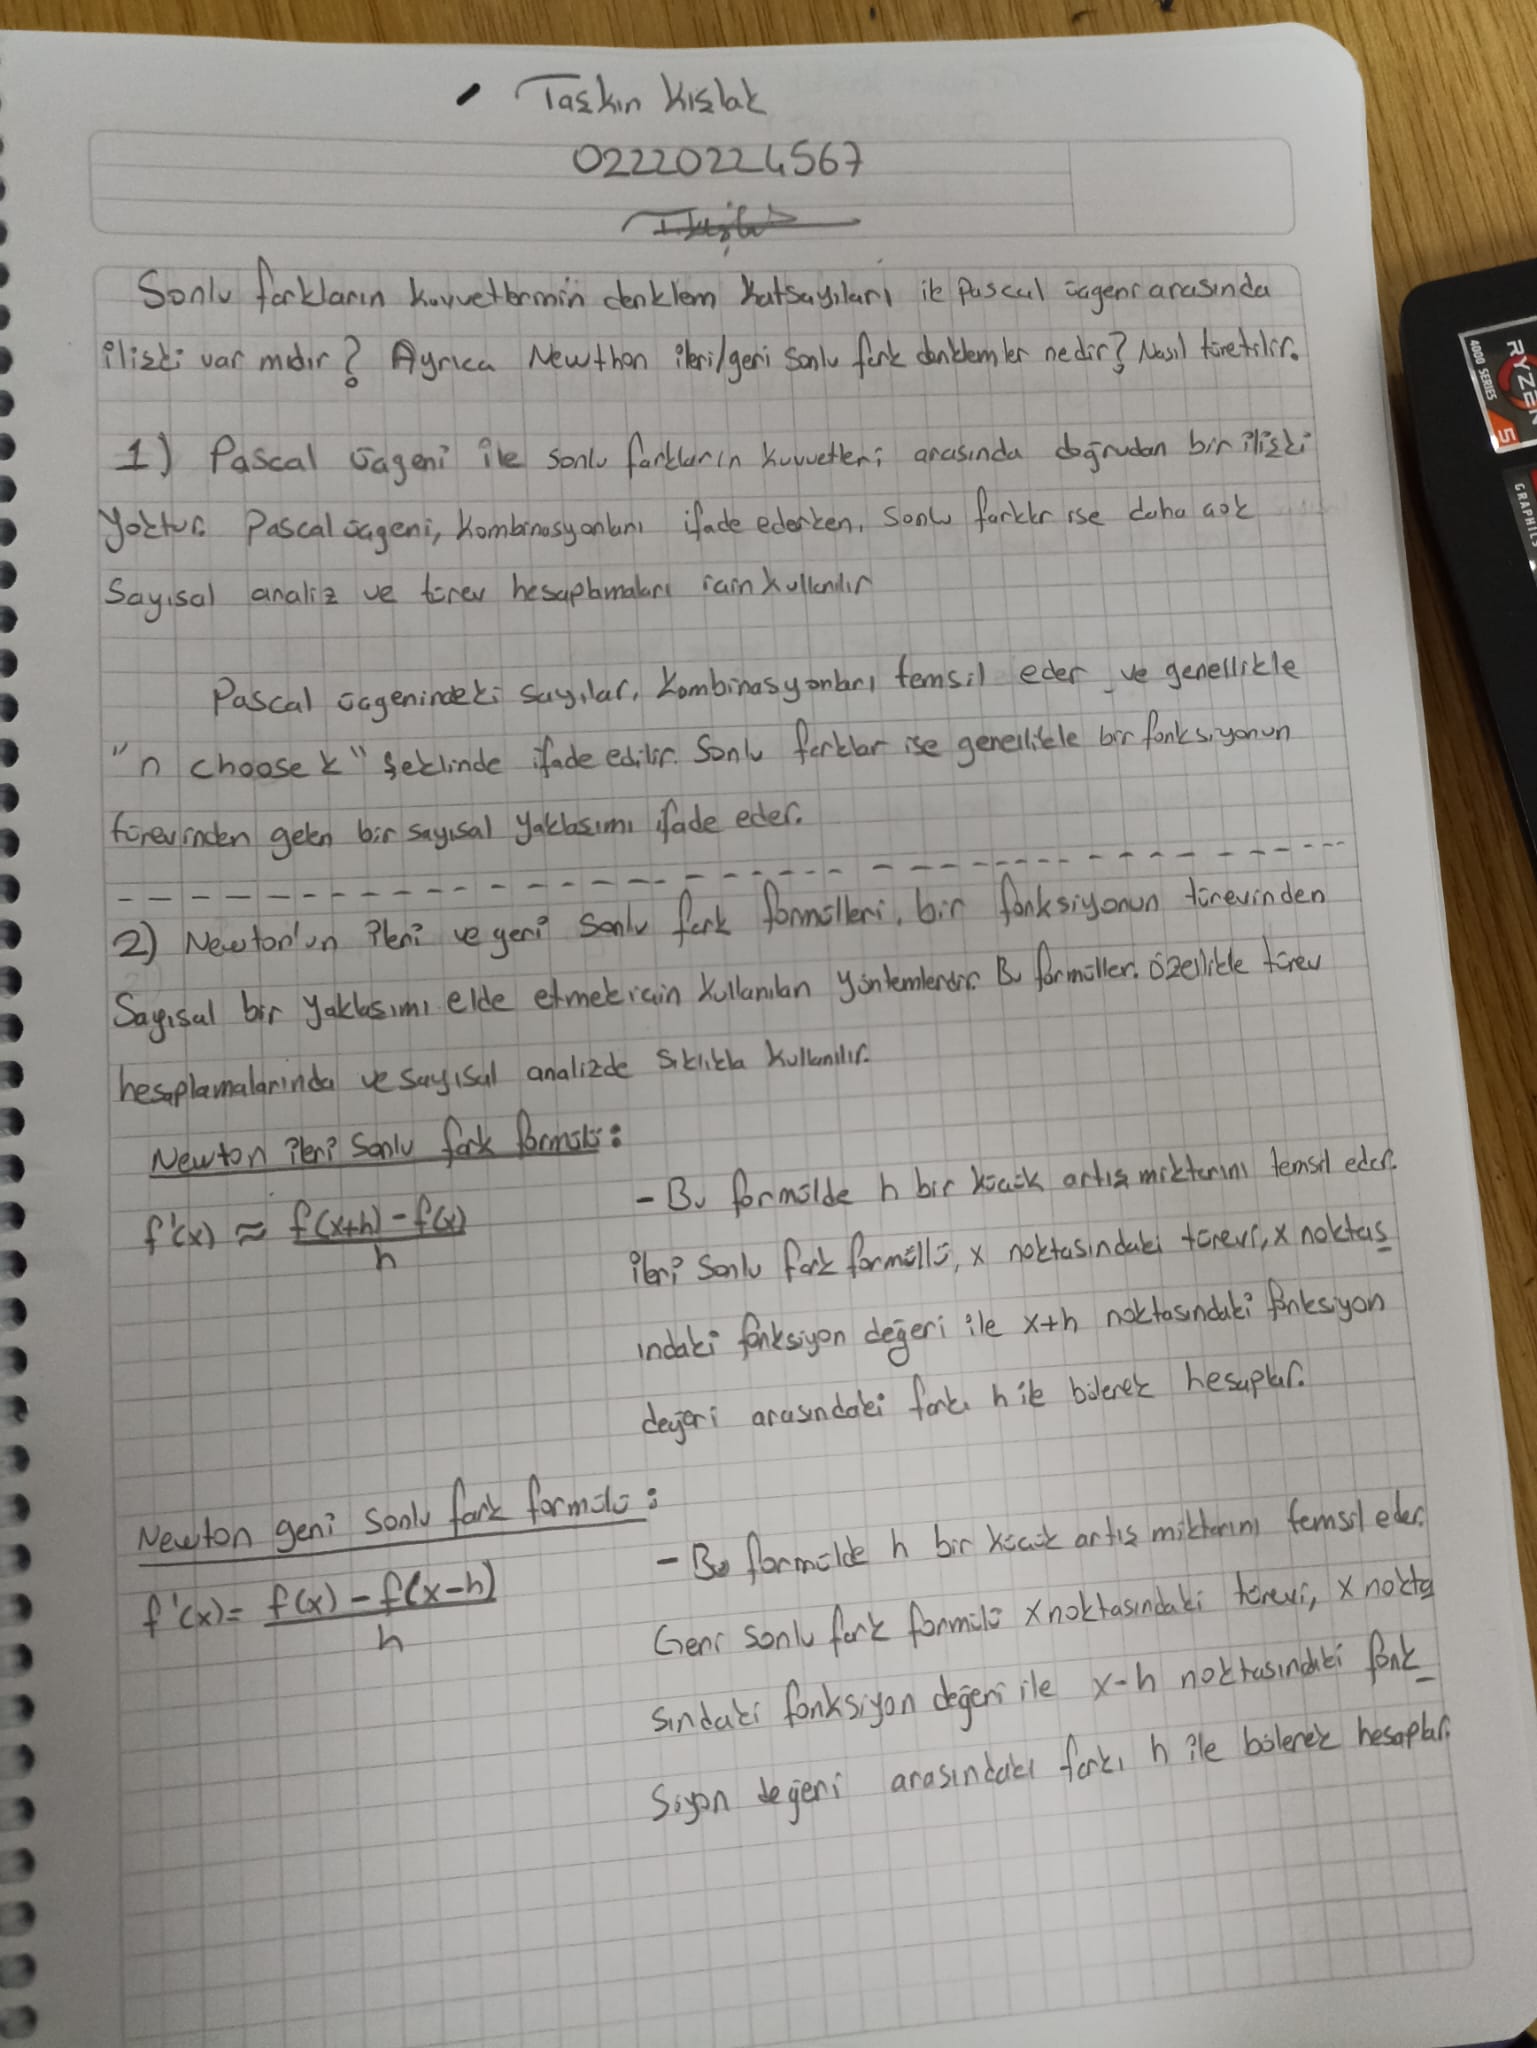 Taşkın Kışlak
02220224567
Sonlu farkların kuvvetlerinin denklem katsayıları ile Pascal üçgeni arasında
ilişki var mıdır? Ayrıca Newthon ileri/geri Sonlu fark denklemler nedir? Nasıl türetilir.
1) Pascal üçgeni ile sonlu farkların kuvvetleri arasında doğrudan bir ilişki
yoktur. Pascal üçgeni, kombinasyonları ifade ederken, sonlu farklar ise daha çok
Sayısal analiz ve türev hesaplamaları için kullanılır
Pascal üçgenindeki sayılar, kombinasyonları temsil eder ve genellikle
"n choose k" şeklinde ifade edilir. Sonlu farklar ise genellikle bir fonksiyonun
türevinden gelen bir sayısal yaklaşımı ifade eder.
2) Newton'un ileri ve geri sonlu fark formülleri, bir fonksiyonun türevinden
Sayısal bir yaklaşımı elde etmek için kullanılan yöntemlerdir. Bu formüller. özellikle türev
hesaplamalarında ve sayısal analizde sıklıkla kullanılır.
Newton ileri Sonlu fark formülü:
f'(x) ≈ f(x+h) - f(x) / h
- Bu formülde h bir küçük artış miktarını temsil eder.
ileri Sonlu fark formüllü, x noktasındaki türevi, x noktas_
ındaki fonksiyon değeri ile x+h noktasındaki fonksiyon
değeri arasındaki farkı h ile bölerek hesaplar.
Newton geri Sonlu fark formülü:
f'(x) = f(x) - f(x-h) / h
- Bu formülde h bir küçük artış miktarını temsil eder.
Geri sonlu fark formülü x noktasındaki türevi, x nokta
sındaki fonksiyon değeri ile x-h noktasındaki fonk_
siyon değeri arasındaki farkı h ile bölerek hesaplar.
RYZEN 5
4000 SERIES
GRAPHICS